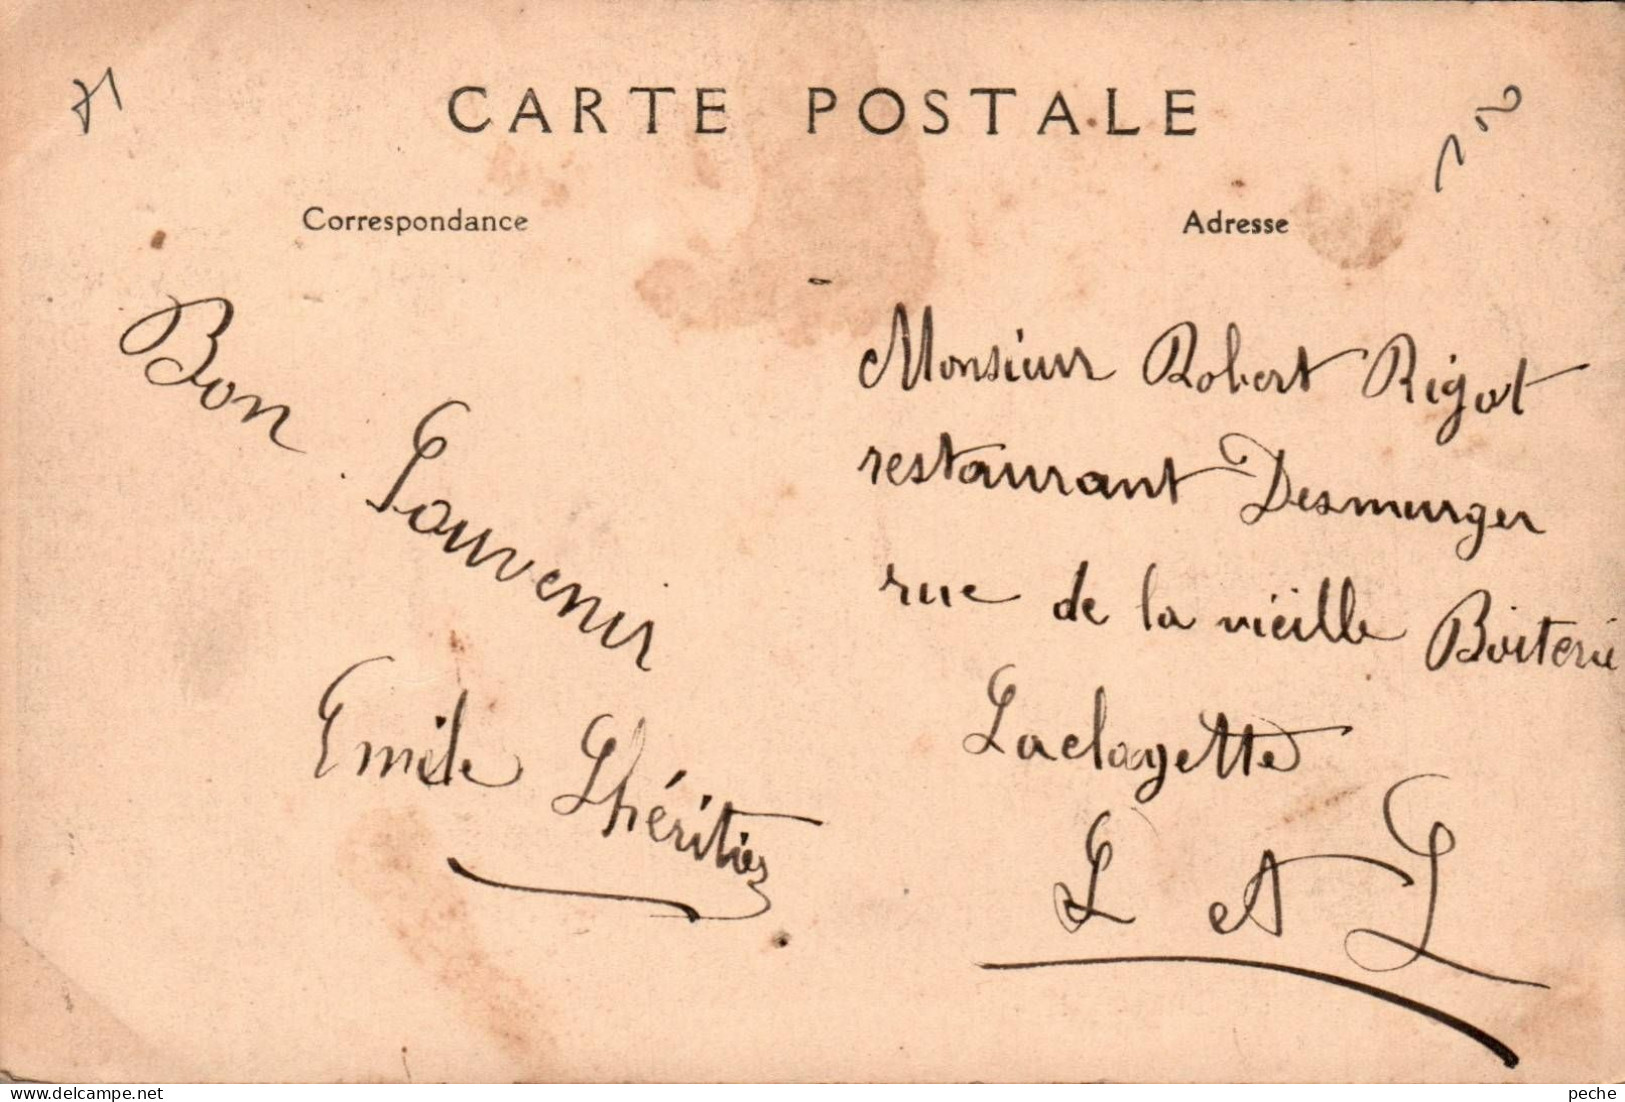 71
CARTE POSTALE
Correspondance
Adresse
Bon
Souvenir
Emile Lhéritier
Monsieur Robert Rigot
restaurant Desmurger
rue de la vieille Boiterie
Laclayette
S et L
delcampe.net
peche